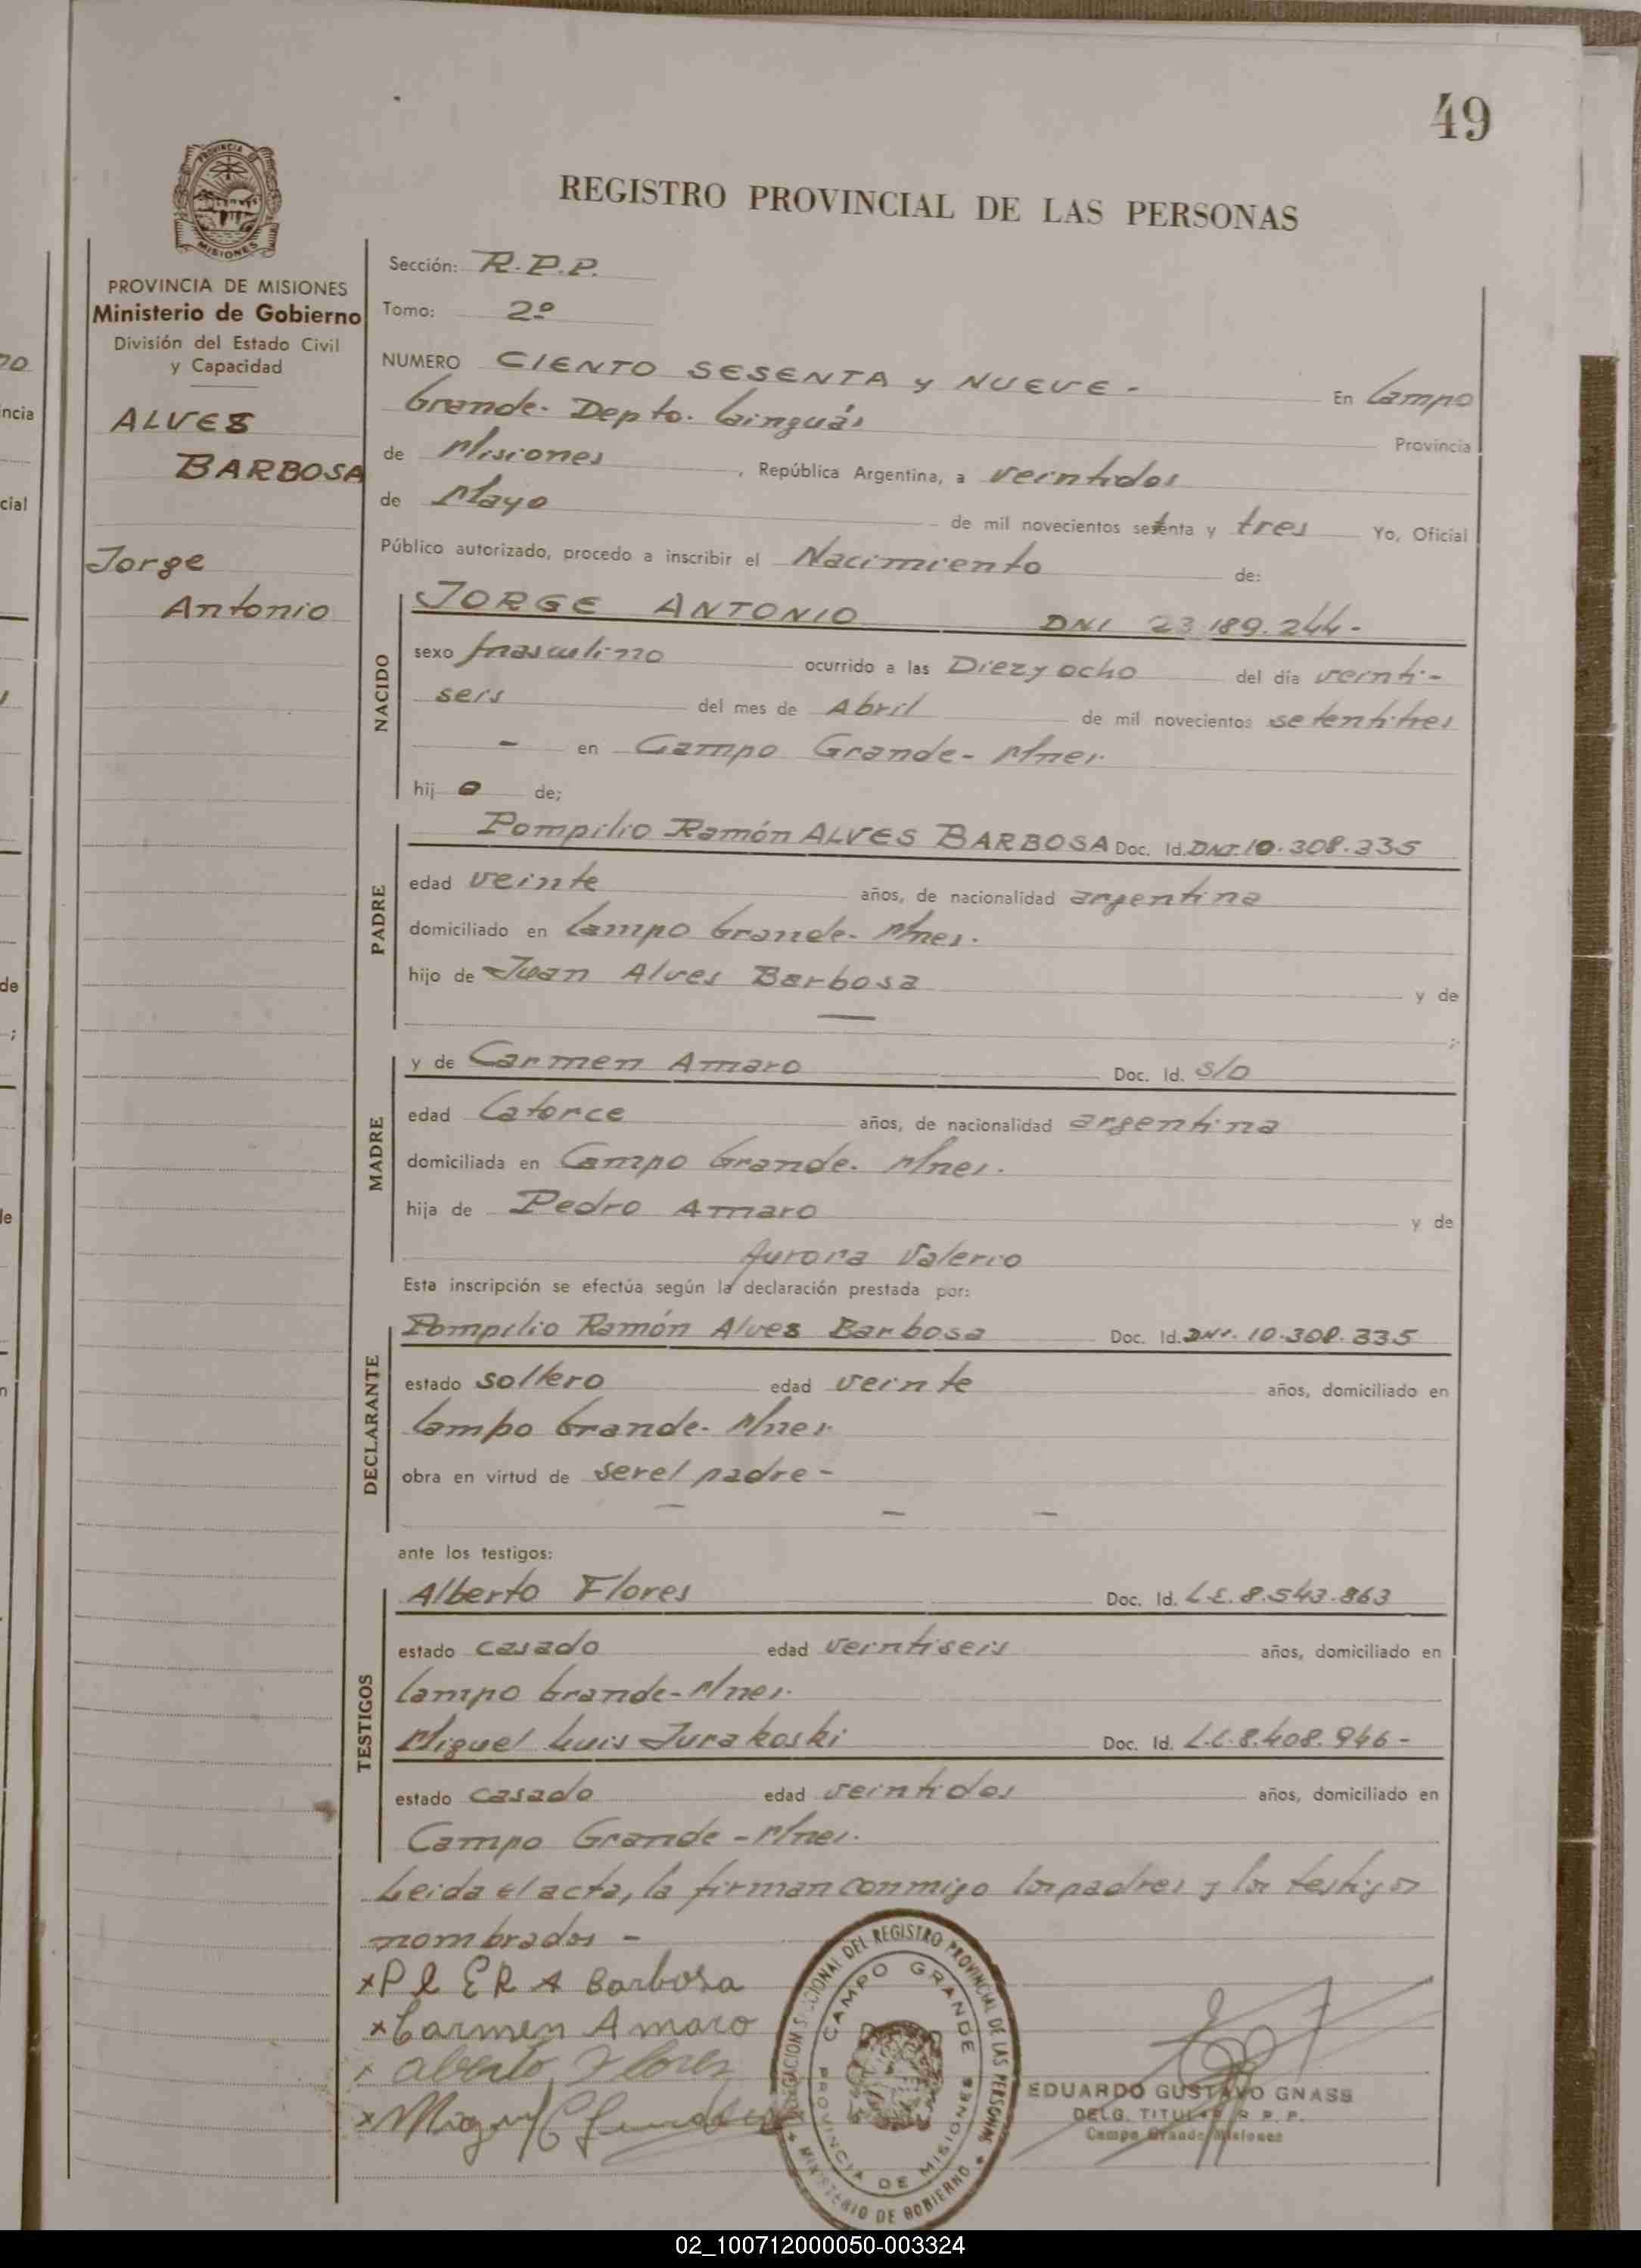 49
PROVINCIA
MISIONES
REGISTRO PROVINCIAL DE LAS PERSONAS
PROVINCIA DE MISIONES
Ministerio de Gobierno
División del Estado Civil
y Capacidad
ALVES
BARBOSA
Jorge
Antonio
Sección: R.P.P.
Tomo: 2º
NUMERO CIENTO SESENTA y NUEVE - En Campo
Grande. Depto. Cainguás Provincia
de Misiones, República Argentina, a veintidos
de Mayo de mil novecientos setenta y tres Yo, Oficial
Público autorizado, procedo a inscribir el Nacimiento de:
NACIDO
JORGE ANTONIO DNI 23.189.244-
sexo masculino ocurrido a las Diez y ocho del día veinti-
seis del mes de Abril de mil novecientos setentitres
- en Campo Grande - Mnes.
hij o de;
PADRE
Pompilio Ramón ALVES BARBOSA Doc. Id. DNI. 10.308.335
edad veinte años, de nacionalidad argentina
domiciliado en Campo Grande - Mnes.
hijo de Juan Alves Barbosa y de
— ;
MADRE
y de Carmen Amaro Doc. Id. S/D
edad Catorce años, de nacionalidad argentina
domiciliada en Campo Grande. Mnes.
hija de Pedro Amaro y de
Aurora Valerio
Esta inscripción se efectúa según la declaración prestada por:
DECLARANTE
Pompilio Ramón Alves Barbosa Doc. Id. DNI. 10.308.335
estado soltero edad veinte años, domiciliado en
Campo Grande - Mnes.
obra en virtud de ser el padre -
- - -
ante los testigos:
TESTIGOS
Alberto Flores Doc. Id. L.E. 8.543.863
estado casado edad veintiseis años, domiciliado en
Campo Grande - Mnes.
Miguel Luis Jurakoski Doc. Id. L.E. 8.408.946 -
estado casado edad veintidos años, domiciliado en
Campo Grande - Mnes.
Leida el acta, la firman conmigo los padres y los testigos
nombrados -
x P R A Barbosa
x Carmen Amaro
x Alberto Flores
x Miguel
DEL REGISTRO PROVINCIAL DE LAS PERSONAS
MINISTERIO DE GOBIERNO
CAMPO GRANDE
PROVINCIA DE MISIONES
EDUARDO GUSTAVO GNASS
DELG. TITULAR R. P. P.
Campo Grande Misiones
02_100712000050-003324